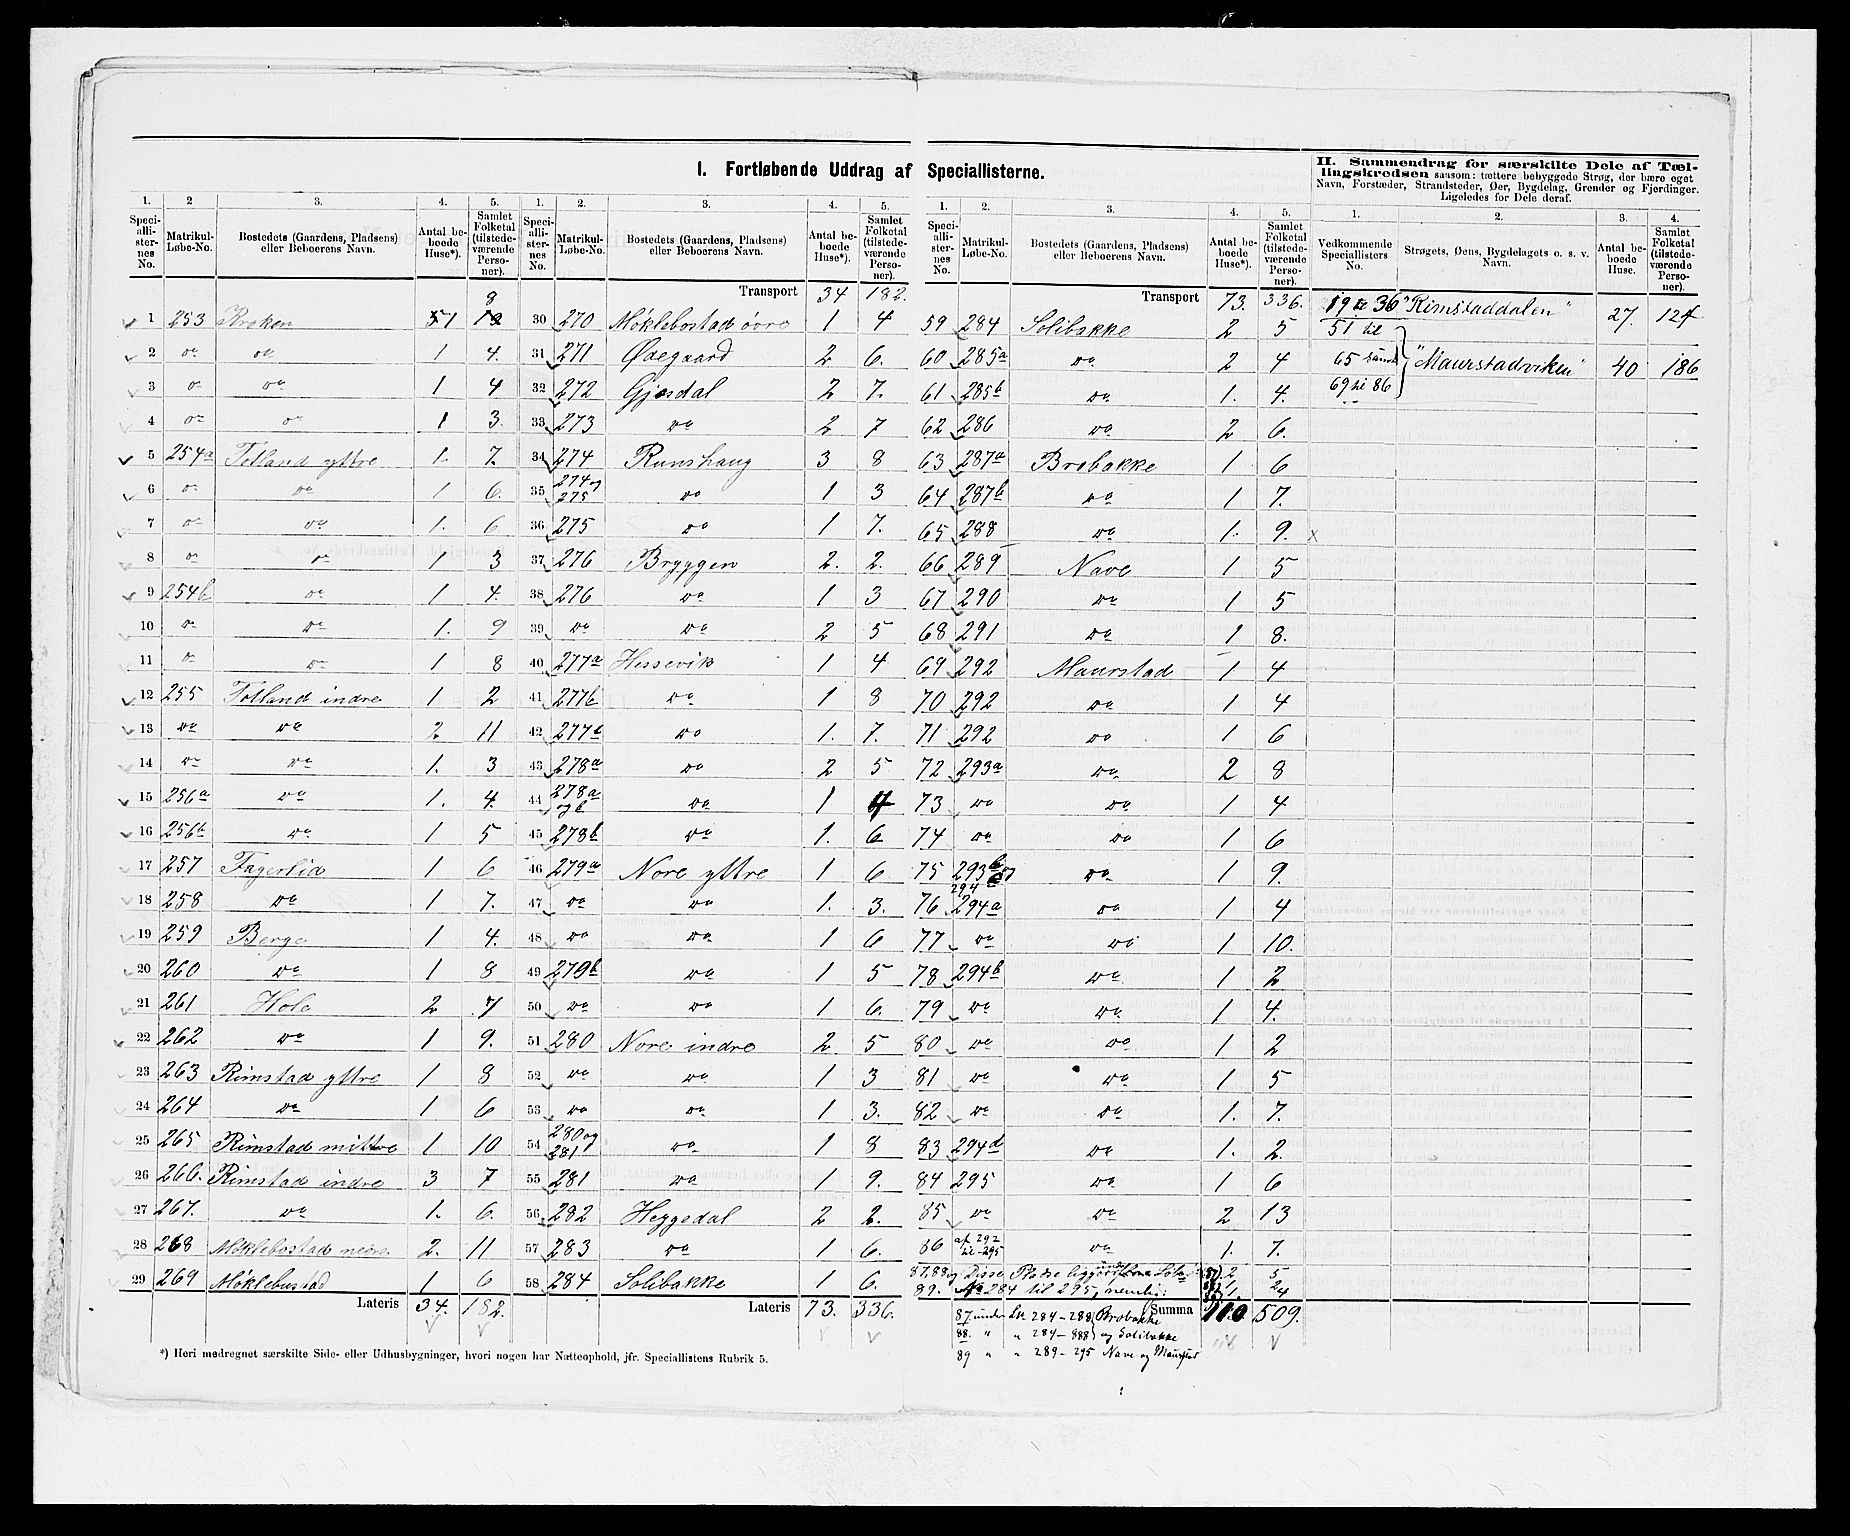 I. Fortløbende Uddrag af Speciallisterne.
II. Sammendrag for særskilte Dele af Tæl-
lingskredsen saasom: tættere bebyggede Strøg, der bære eget
Navn, Forstæder, Strandsteder, Øer, Bygdelag, Grender og Fjerdinger.
Ligeledes for Dele deraf.
1. 2 3. 4. 5.
Speciallisternes No. Matrikul-Løbe-No. Bostedets (Gaardens, Pladsens) eller Beboerens Navn. Antal beboede Huse*). Samlet Folketal (tilstedeværende Personer).
1 253 Kroken 1 8
2 do do 1 4.
3 do do 1 4
4 do do 1 3.
5 254a Totland yttre 1. 7.
6 do do 1 6.
7 do do 1. 6
8 do do 1 3
9 254b do 1 4.
10 do do 1. 9
11 do do 1 8
12 255 Totland indre 1 2
13 do do 2. 11
14 do do 1. 3
15 256a do 1. 4.
16 256b do 1 5
17 257 Fagerlid 1 6
18 258 do 1 7.
19 259 Berge 1 4.
20 260 do 1 8
21 261 Hole 2 7
22 262 do 1 9.
23 263 Rimstad yttre 1 8
24 264 do 1 6
25 265 Rimstad mittre 1 10
26 266. Rimstad indre 3 7
27 267. do 1. 6.
28 268 Møklebostad nedre 2. 11
29 269 Møklebustad 1 6
Lateris 34. 182.
*) Heri medregnet særskilte Side- eller Udhusbygninger, hvori nogen har Natteophold, jfr. Speciallistens Rubrik 5.
1. 2. 3. 4. 5.
Speciallisternes No. Matrikul-Løbe-No. Bostedets (Gaardens, Pladsens) eller Beboerens Navn. Antal beboede Huse*). Samlet Folketal (tilstedeværende Personer).
Transport 34 182.
30 270 Møklebostad øvre 1 4
31 271 Ødegaard 2 6.
32 272 Gjesdal 2 7.
33 273 do 2 7
34 274 Runshaug 3 8
35 274 og 275 do 1 3
36 275 do 1 7.
37 276 Bryggen 2. 2.
38 276 do 1 3
39 do do 2 5
40 277a Hessevik 1 4
41 277b do 1 8
42 277b do 1. 7.
43 278a do 2 5
44 278a og b do 1 4
45 278b do 1. 6
46 279a Nore yttre 1 6
47 do do 1. 3.
48 do do 1 6
49 279b do 1 5
50 do do 1 6.
51 280 Nore indre 2. 5
52 do do 1 3
53 do do 1 3.
54 280 og 281 do 1 8
55 281 do 1 9.
56 282 Heggedal 2 2.
57 283 do 1 6.
58 284 Solibakke 1 6.
Lateris 73. 336.
1. 2. 3. 4. 5.
Speciallisternes No. Matrikul-Løbe-No. Bostedets (Gaardens, Pladsens) eller Beboerens Navn. Antal beboede Huse*). Samlet Folketal (tilstedeværende Personer).
Transport 73. 336.
59 284 Solibakke 2 5
60 285a do 2 4
61 285b do 1. 4.
62 286 do 2 6.
63 287a Brobakke 1 6
64 287b do 1 7.
65 288 do 1. 9. x
66 289 Nave 1 5
67 290 do 1 5
68 291 do 1 8.
69 292 Maurstad 1 4
70 292 do 1 4
71 292 do 1 6
72 293a do 2 8
73 do do 1 4
74 do do 1 6
75 293b do 1 9.
76 294a do 1 4
77 do do 1 10.
78 294b do 1 2
79 do do 1 4.
80 do do 1 2
81 do do 1 5
82 do do 1. 7.
83 294d do 1. 2.
84 295 do 1 6
85 do do 2 13
86 af 292 til 295 do 1. 7.
87, 88 og Disse Pladse ligge under 2 5
89. No 284 til 295, nemlig: 1. 24
Summa 110 509.
87 under Lb. 284-288 Brobakke
88. " " 284-288 og Solibakke
89 " " 289-295 Nave og Maurstad
1. 2. 3. 4.
Vedkommende Speciallisters No. Strøgets, Øens, Bygdelagets o. s. v. Navn. Antal beboede Huse. Samlet Folketal (tilstedeværende Personer).
19 til 36 "Rimstaddalen" 27. 124
51 til
65 samt "Maurstadviken" 40 186
69 til 86